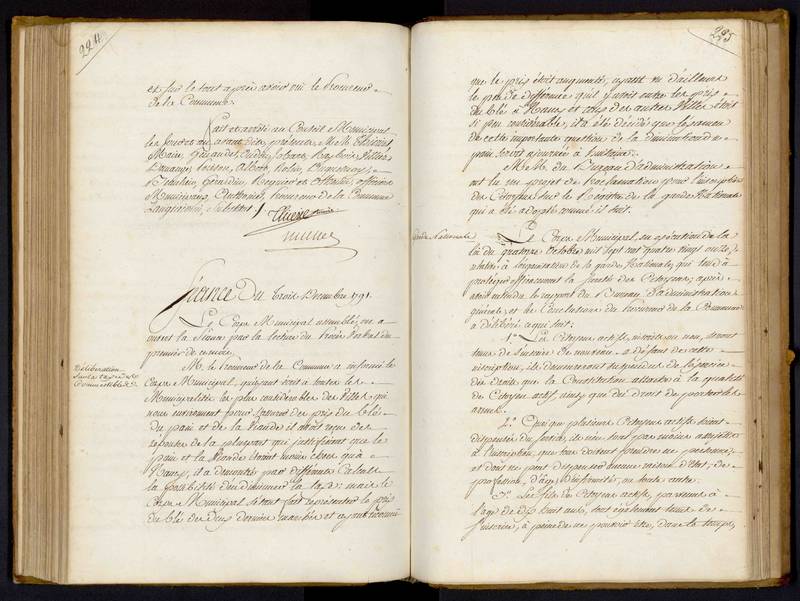 224.
et sur le tout après avoir oui le Procureur
de la Commune.
Fait et arrêté au Conseil Municipal
les jour et an avant dits, présents M.M.
Maire,
Municipaux, Procureur de la Commune
Substitut.
Séance Du trois Décembre 1791.
Le Corps Municipal assemblé, on a
ouvert la séance par la lecture du Procès Verbal du
premier de ce mois.
Délibération
sur la taxe des
Comestibles
M. le Procureur de la Commune a informé le
Corps Municipal, qu'ayant écrit à toutes les
Municipalités les plus considérables des Villes qui
nous entourent pour s'assurer des prix du blé
du pain et de la viande il avait reçu des
réponses de la plupart qui justifiaient que le
pain et la viande étaient moins chers qu'à
Nancy, il a démontré par différents calculs
la possibilité d'en diminuer la taxe; mais le
Corps Municipal s'étant fait représenter le prix
du blé des deux derniers marchés et ayant reconnu
225
que le prix était augmenté, ayant vu d'ailleurs
le peu de différence qu'il y avait entre les prix
du blé à Nancy et ceux des autres Villes était
si peu considérable, il a été décidé que l'examen
de cette importante question de la diminution du
pain serait ajournée à huitaine.
M.M. du Bureau d'administration
ont lu un projet de Proclamation pour l'inscription
des Citoyens sur le Registre de la garde Nationale
qui a été adopté comme il suit.
Garde Nationale
Le Corps Municipal, en exécution de la
loi du quatorze octobre mil sept cent quatre vingt onze,
relative à l'organisation de la garde Nationale, qui tend à
protéger efficacement la sureté des Citoyens; après
avoir entendu le rapport du Bureau d'administration
générale, et les Conclusions du Procureur de la Commune
a délibéré ce qui suit:
1.° Les Citoyens actifs, inscrits ou non, seront
tenus de s'inscrire de nouveau; à défaut de cette
inscription, ils demeureront suspendus de l'exercice
des droits que la Constitution attache à la qualité
de Citoyen actif, ainsi que du droit de porter les
armes.
2.° Quoique plusieurs Citoyens actifs soient
dispensés du service, ils n'en sont pas moins assujettis
à l'inscription, que tous doivent prendre en personne,
et dont ne peut dispenser aucune raison d'état, de
profession, d'age, d'infirmité, ou toute autre.
3.° Les fils de Citoyens actifs, parvenus à
l'age de dix huit ans, sont également tenus de
s'inscrire, à peine de ne pouvoir être, dans la temps,